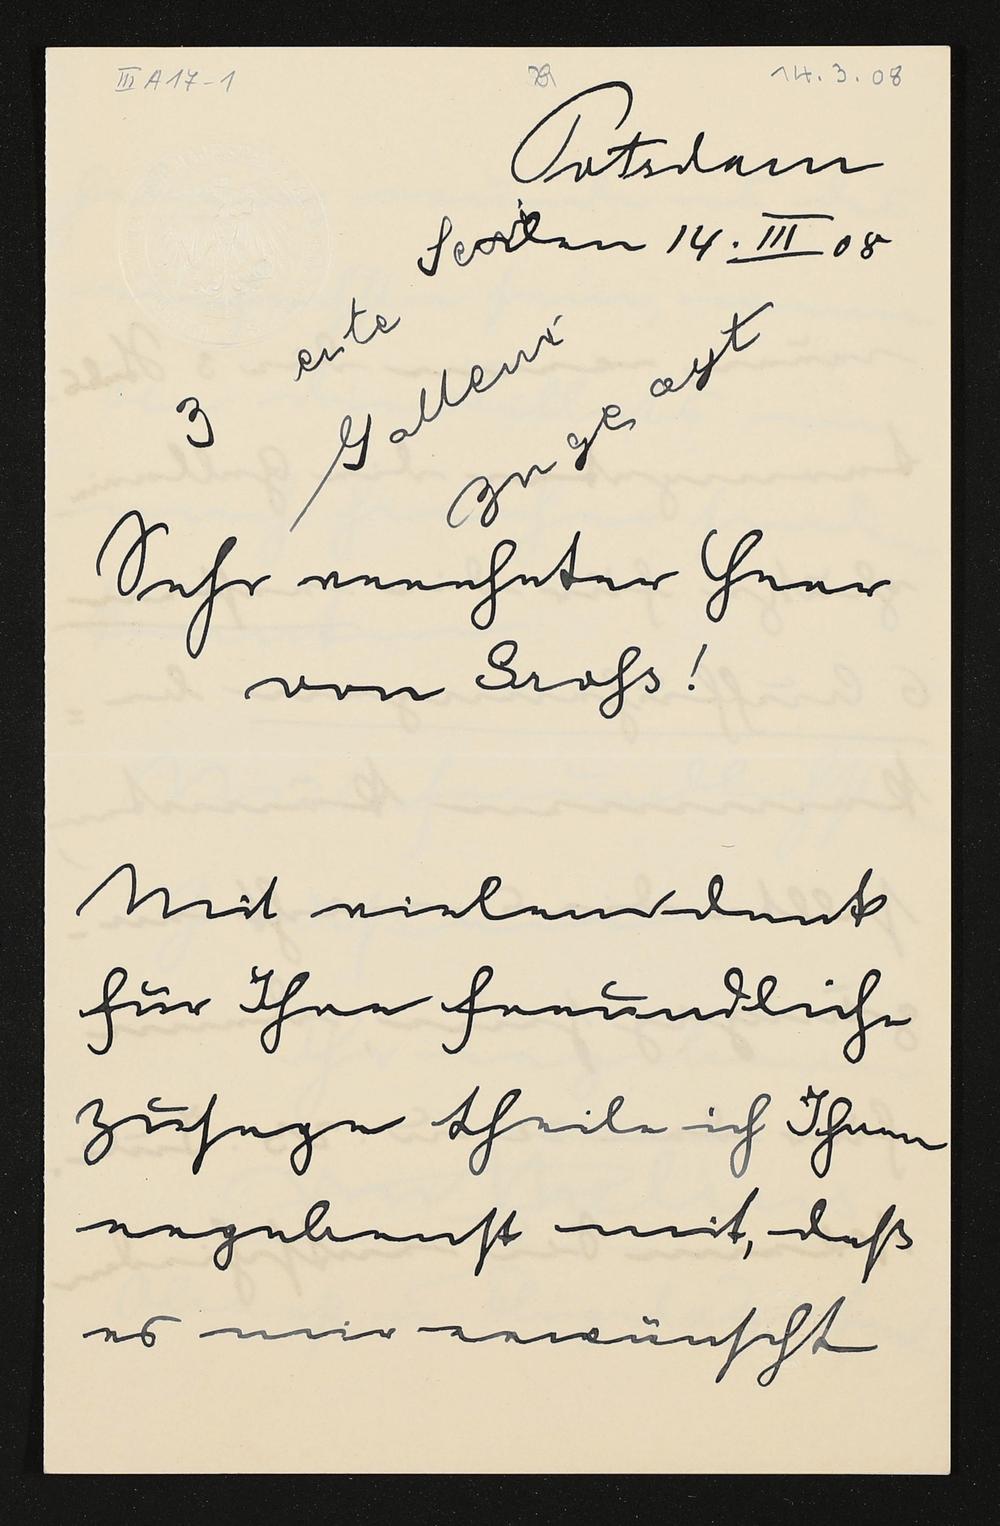 III A 17-1
14.3.08
Potsdam
14. III 08
3 erste
Galleri
zugesagt
Sehr verehrter Herr
von Groß!
Mit vielem dank
für Ihre freundliche
zusage theile ich Ihnen
ergebenst mit, daß
es mir erwünscht